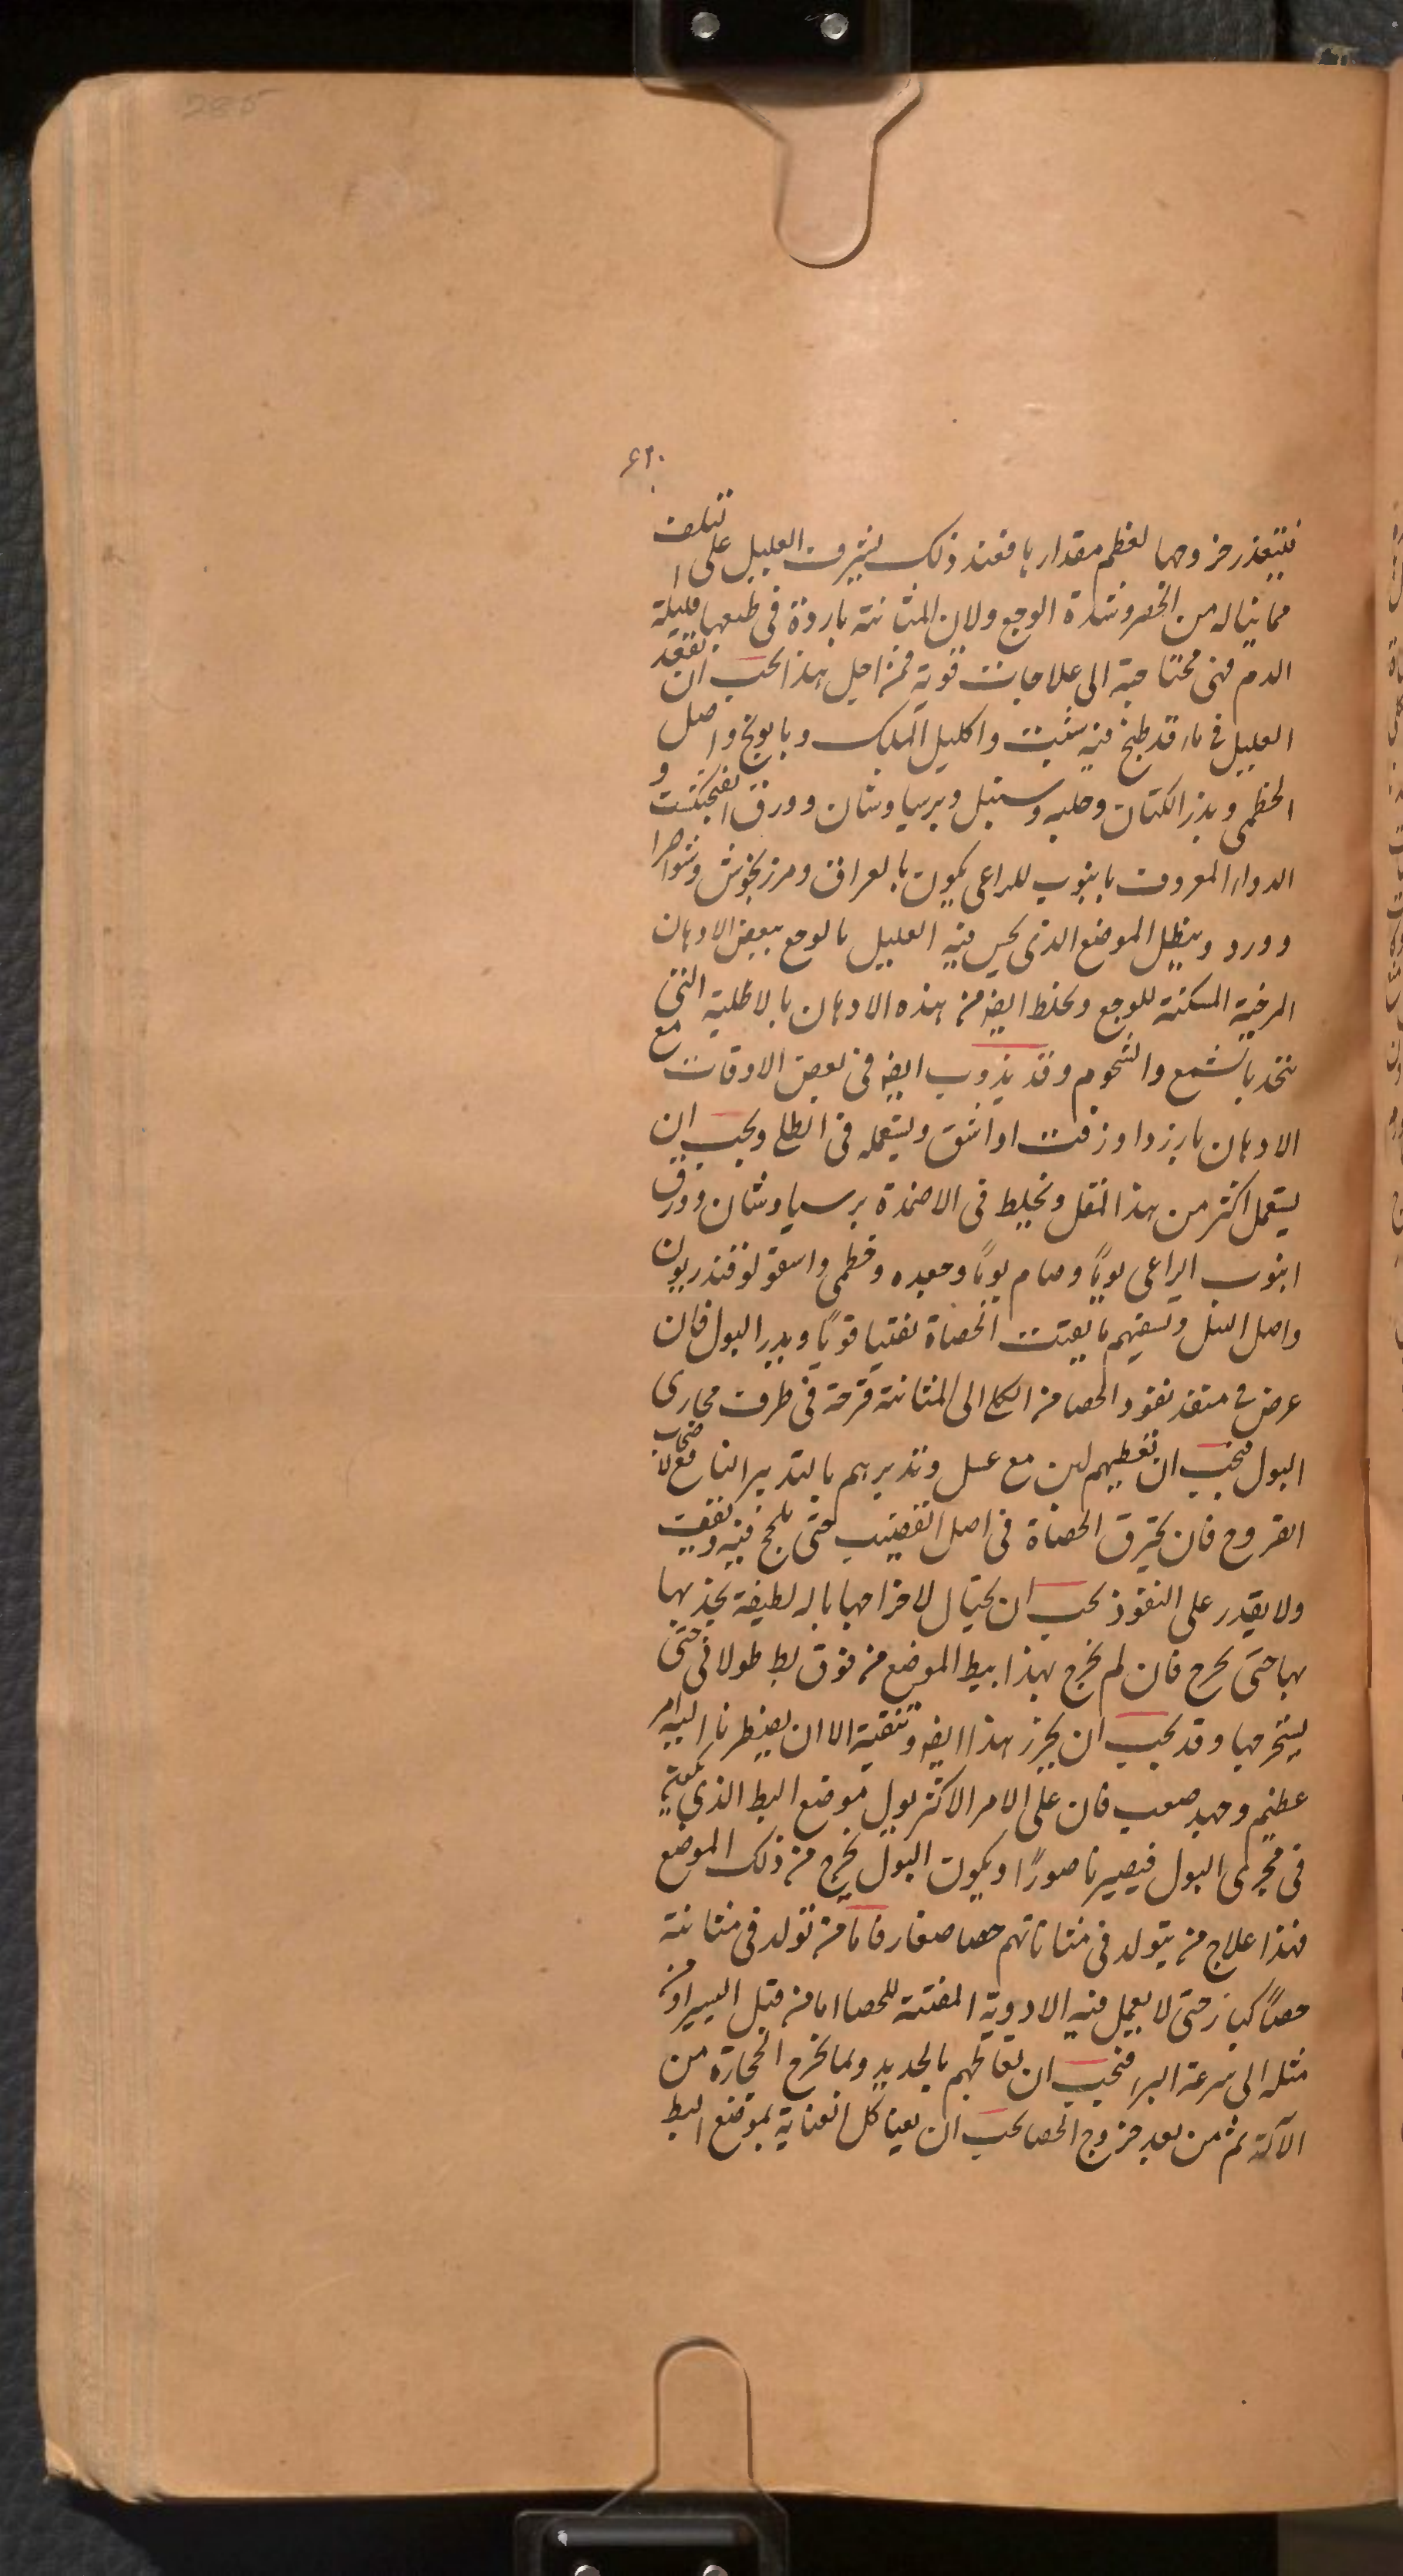 285
٤٢٠
فيتعذر خروجها لعظم مقدارها فعند ذلك يشرف العليل على التلف
مما يناله من الحصر وشدة الوجع ولان المثانة باردة في طبعها قليلة
الدم فهى محتاجة الى علاجات قوية فمن اجل هذا يجب ان يقعد
العليل في ماء قد طبخ فيه شبت واكليل الملك وبابونج واصل
الخطمى وبذر الكتان وحلبه وسنبل وبرسياوشان وورق الفنجنكشت و
الدواء المعروف بابنوب الراعى يكون بالعراق ومرزنجوش وشواصرا
وورد وينطل الموضع الذى يحس فيه العليل بالوجع ببعض الادهان
المرخية المسكنة للوجع ويخلط ايضا من هذه الادهان بالاطلية التى
تتخذ بالشمع والشحوم وقد يذوب ايضا في بعض الاوقات مع
الادهان بارزد او زفت او اشق ويستعمله فى الطلى ويجب ان
يستعمل اكثر من هذا المقل ويخلط فى الاضمدة برسياوشان وورق
ابنوب الراعى يوبًا وصام يوبًا وجعده وخطمى واسقولوفندريون
واصل النيل وتسقيهم ما يفتت الحصاة تفتيتا قويًا ويدر البول فان
عرض فى منفذ نفوذ الحصا من الكلى الى المثانة قرحة فى طرف مجارى
البول فيجب ان تعطيهم لبن مع عسل وتدبيرهم بالتدبير النافع لاصحاب
القروح فان يحترق الحصاة فى اصل القضيب حتى يلحج فيه ويقف
ولا يقدر على النفوذ يجب ان يحتال لاخراجها باله لطيفة يجذبها
بها حتى يخرج فان لم يخرج بهذا يبط الموضع من فوق بط طولانى حتى
يستخرجها وقد يجب ان يحرز هذا ايضا وتتقيه الا ان يضطرنا اليه امر
عظيم وجهد صعب فان على الامر الاكثر يول موضع البط الذى يكون
فى مجرى البول فيصير ناصورًا ويكون البول يخرج من ذلك الموضع
فهذا علاج من يتولد فى مثاناتهم حصا صغار فاما من تولد فى مثانة
حصاً كبار حتى لا يعمل فيه الادوية المفتتة للحصا اما من قبل اليسير او من
مثله الى سرعة البرء فيجب ان تعالجهم بالحديد ولما يخرج الحجارة من
الآلة ثم من بعد خروج الحصا يجب ان يعنا كل العناية بموضع البط